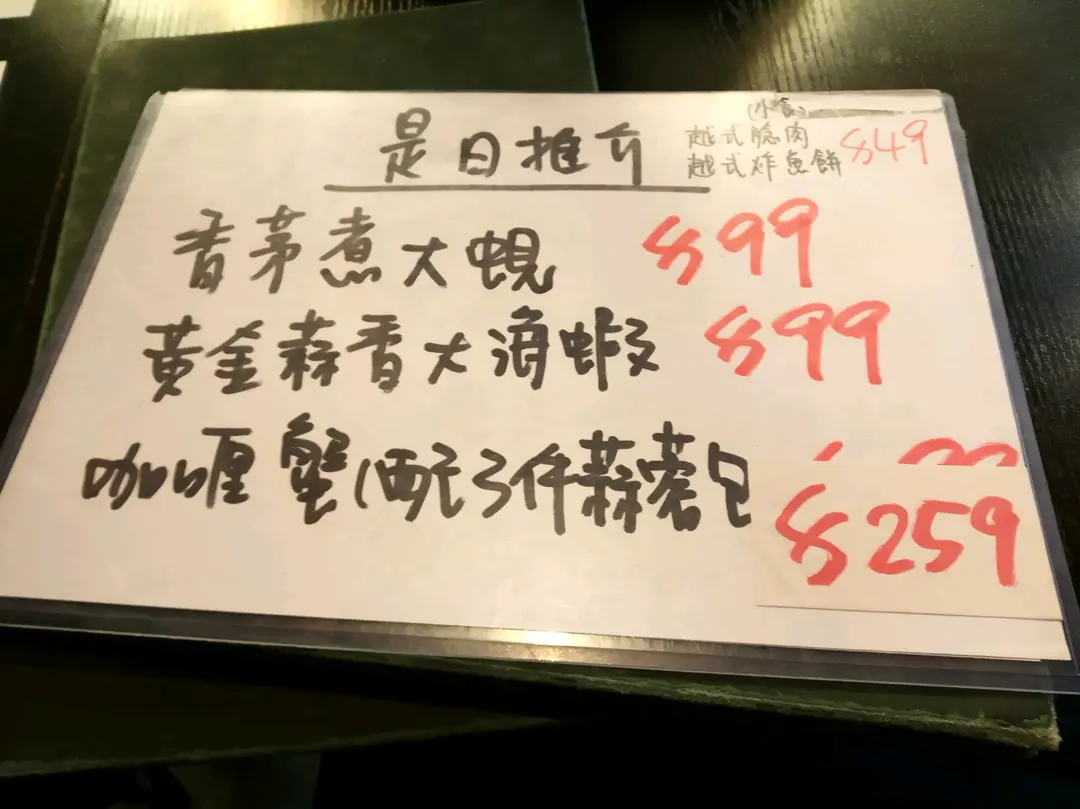 是日推介
(小食)
越式腍肉
越式炸魚餅 $49
香茅煮大蜆 $99
黃金蒜香大海蝦 $99
咖喱蟹(配3件蒜蓉包 $259